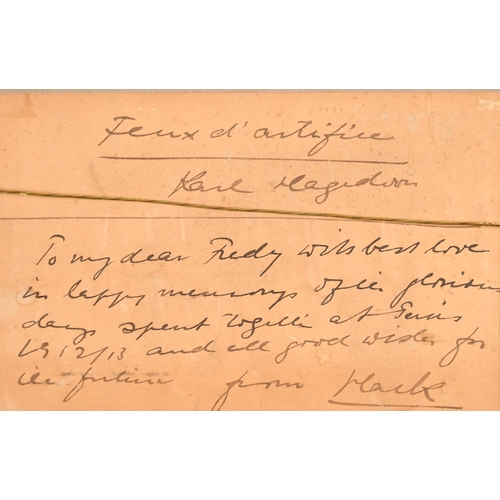 Feux d'artifice
Karl Hagedorn
To my dear Fredy with best love
in happy memory of the glorious
days spent together at Paris
1912/13 and all good wishes for
the future from Hack